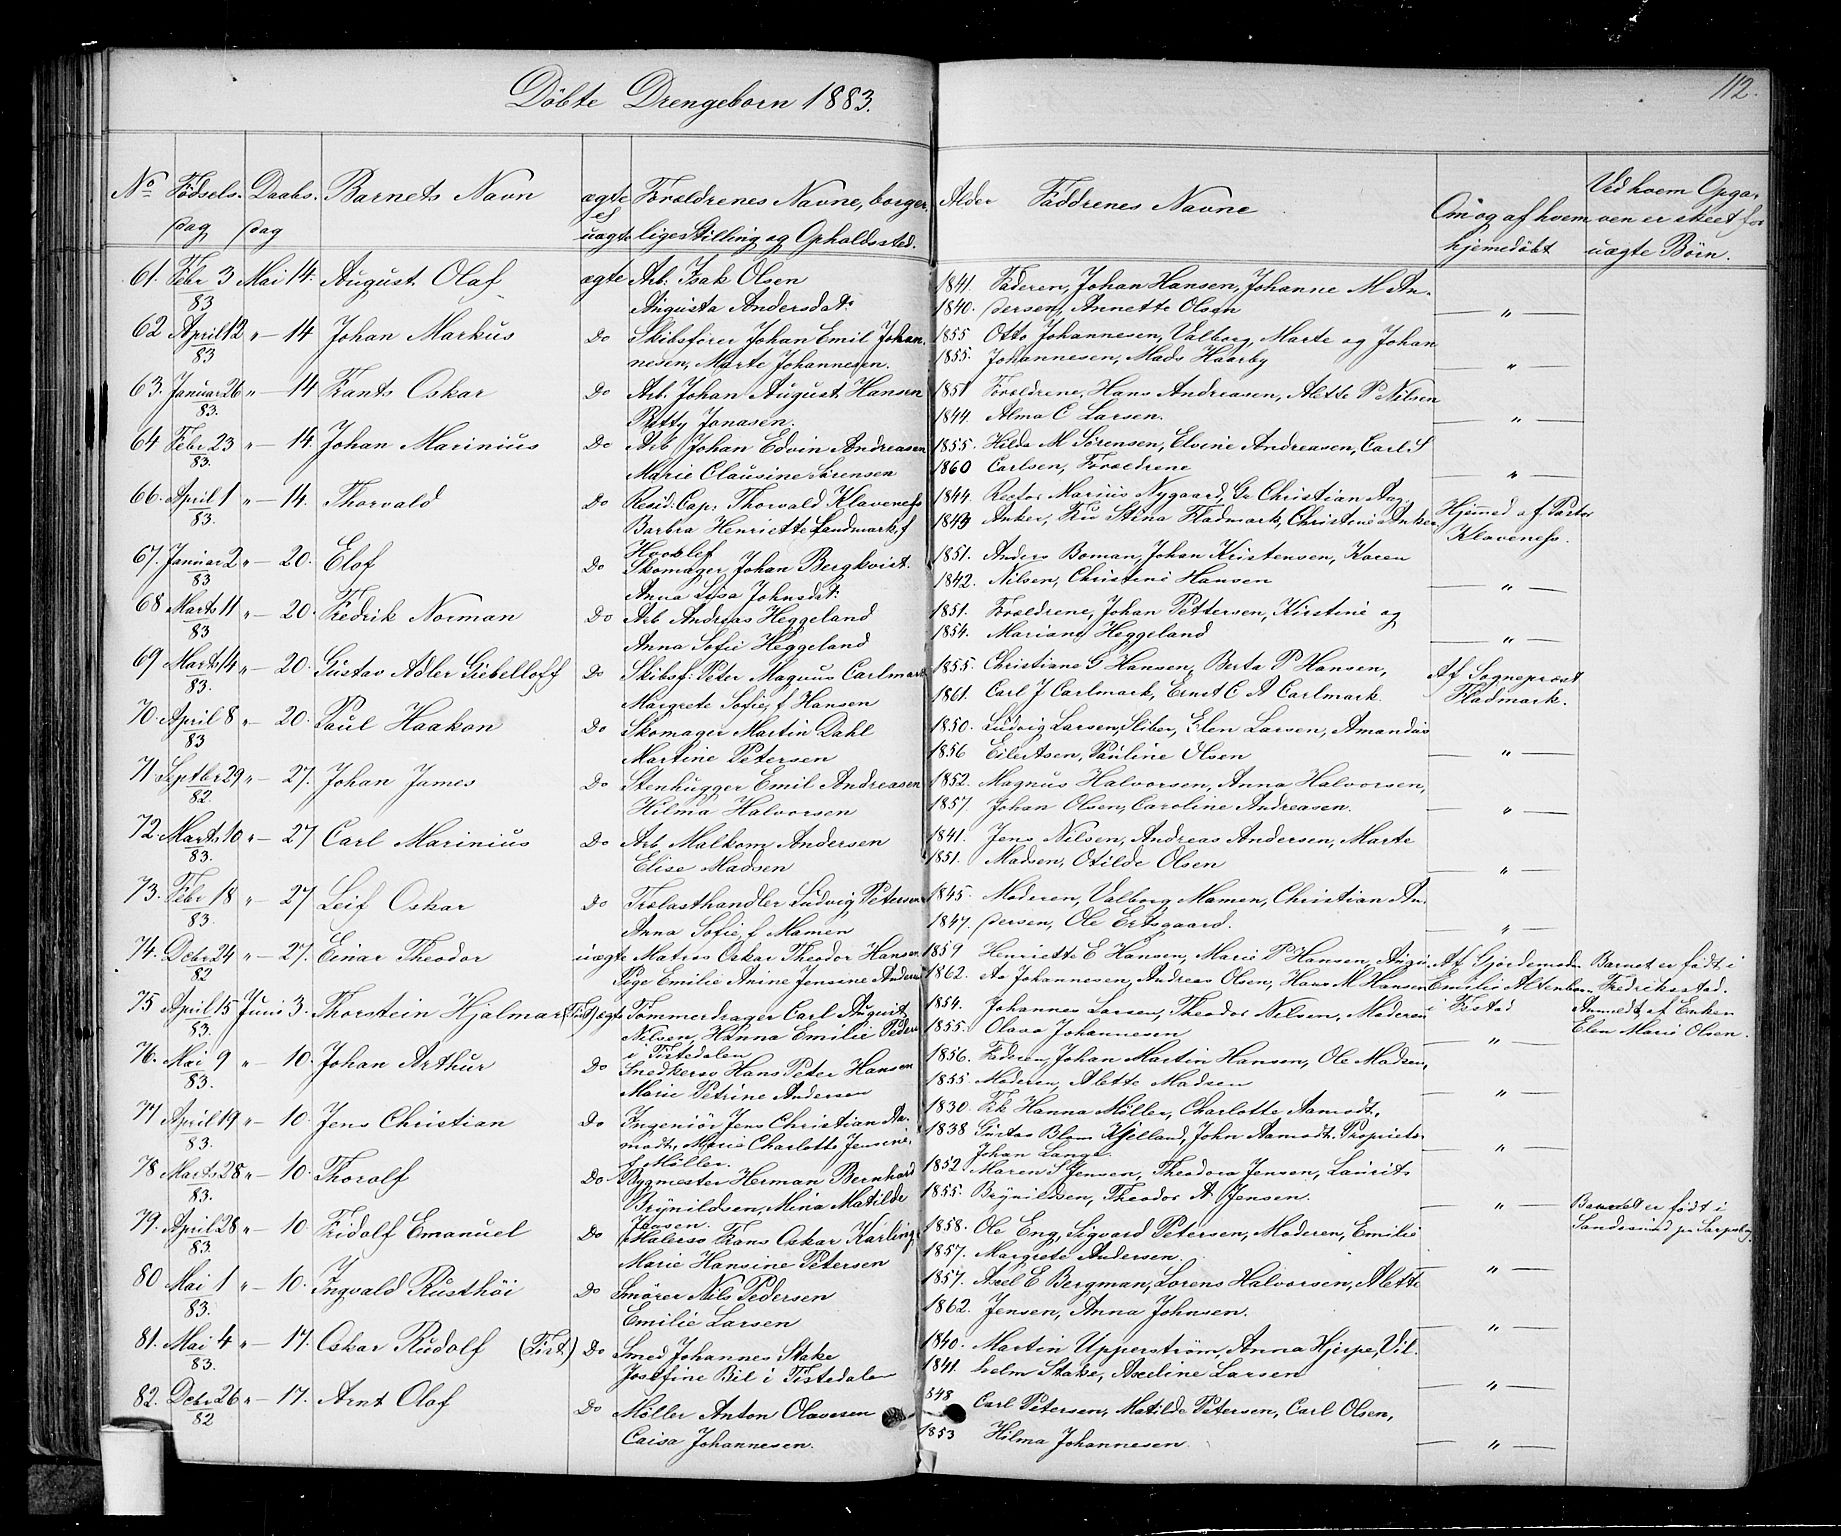 Döbte Drengebørn 1883.
112.
No Fødsels- dag Daabs- dag Barnets Navn ægte el uægte Forældrenes Navne, borger- lige Stilling og Opholdssted. Alder Faddrenes Navne Om og af hvem hjemedøbt Ved hvem Opga- ven er skeet for uægte Børn.
61. Febr 3 83 Mai 14. August Olaf ægte Arb: Isak Olsen 1841. Faderen, Johan Hansen, Johanne M An-
Augusta Andersdat: 1840. dersen, Annette Olsen — " —
62 April 12 83 " — 14 Johan Markus Do Skibsfører Johan Emil Johan- 1855 Otto Johannesen, Valborg, Marte og Johan
nesen, Marte Johannesen. 1855. Johannesen, Mads Haarby — " —
63. Januar 26 83. " — 14 Frants Oskar Do Arb. Johan August Hansen 1851 Forældrene, Hans Andreasen, Alette P Nilsen
Betty Jonasen. 1844. Alma C Larsen. — " —
64 Febr 23 83. " — 14. Johan Marinius Do Arb Johan Edvin Andreasen 1855. Hilda M Sørensen, Elvine Andreasen, Carl S
Marie Clausine Sørensen 1860 Carlsen, Forældrene — " —
66. April 1 83. " — 14. Thorvald Do Resid: Cap: Thorvald Klaveness 1844. Rector Marius Nygaard, Gr Christian Aug.
Barbra Henriette Landmark, f 1843 Anker, Fru Stina Fladmark, Christine Anker Hjemmed af Pastor
Hooslef Klaveness.
67. Januar 2 83 " — 20. Elof Do Skomager Johan Bergkvist. 1851. Anders Boman, Johan Kristensen, Karen
Anna Lisa Johnsdat: 1842. Nilsen, Christine Hansen — " —
68 Marts 11 83 " — 20. Fredrik Norman Do Arb Andreas Heggeland 1851. Forældrene, Johan Pettersen, Kirstine og
Anna Sofie Heggeland 1854. Mariane Heggeland — " —
69 Marts 14 83. " — 20. Gustav Adler Giebelloff Do Skibsf: Peter Magnus Carlmark 1855. Christiane G Hansen, Berta P Hansen, Af Sogneprest
Margrete Sofie, f Hansen 1861. Carl J Carlmark, Ernst C A Carlmark. Fladmark.
70. April 8 83 " — 20. Paul Haakon Do Skomager Martin Dahl 1850. Ludvig Larsen, Sliber, Elen Larsen, Amandus
Martine Petersen 1856 Eilertsen, Pauline Olsen — " —
71 Septbr 29 82. " — 27. Johan James Do Stenhugger Emil Andreasen 1852. Magnus Halvorsen, Anna Halvorsen,
Hilma Halvorsen 1857. Johan Olsen, Caroline Andreasen. — " —
72. Marts 10 83. " — 27. Carl Marinius Do Arb Malkom Andersen 1841. Jens Nilsen, Andreas Andersen, Marte
Elise Madsen 1851. Madsen, Otilde Olsen — " —
73. Febr 18 83. " — 27 Leif Oskar Do Trælasthandler Ludvig Petersen 1845. Moderen, Valborg Mamen, Christian An-
Anna Sofie, f Mamen 1847. dersen, Ole Ertsgaard. — " —
74. Dcbr 24 82 " — 27. Einar Theodor uægte Matros Oskar Theodor Hansen 1859 Henriette E Hansen, Marie P Hansen, Augu- Af Gjordemoder Barnet er født i
Pige Emilie Anine Jensine Anders 1862. sta Johannesen, Andreas Olsen, Hans M Hansen Emilie Altenborn Fredriksstad.
75 April 15 83. Juni 3. Thorstein Hjalmar (Tist) ægte Tømmerdrager Carl August 1854. Johannes Larsen, Theodor Nilsen, Moderen i Festad Anmeldt af Enken
Nilsen, Hanna Emilie Peder 1855. Olava Johannesen — " — Elen Marie Olsen.
i Tistedalen
76. Mai 9 83. " — 10. Johan Arthur Do Snedkersv Hans Peter Hansen 1856. Faderen, Johan Martin Hansen, Ole Madsen,
Marie Petrine Andersen 1855. Moderen, Alette Madsen — " —
77 April 19 83. " — 10. Jens Christian Do Ingeniør Jens Christian Aa- 1830. Frk Hanna Møller, Charlotte Aamodt,
modt, Marie Charlotte Jensine, 1838 Gustav Blom Kjelland, John Aamodt. Propriets
f Møller. Johan Lange — " —
78 Marts 28 83. " — 10. Thorolf Do Bygmester Herman Bernhard 1852. Maren S Jensen, Theodora Jensen, Laurits
Brynildsen, Mina Matilde 1855. Brynildsen, Theodor A Jensen. — " — Barnet er født i
Jensen. Sandesund pr Sarpsborg
79. April 28 83. " — 10 Fridolf Emanuel Do Malersv Frans Oskar Karling 1858. Ole Eng, Sigvard Petersen, Moderen, Emilie
Marie Hansine Petersen 1857. Margrete Andersen. — " —
80 Mai 1 83. " — 10. Ingvald Rusthöi Do Smører Nils Pedersen 1857. Axel E Bergman, Lorens Halvorsen, Alette
Emilie Larsen 1862. Jensen, Anna Johnsen. — " —
81. Mai 4 83. " — 17. Oskar Rudolf (Tist) Do Smed Johannes Stake 1840. Martin Upperstrøm, Anna Hjerpe, Vil-
Josefine Bil i Tistedalen 1841. helm Stake, Axeline Larsen — " —
82. Dcbr 26 82 " — 17. Arnt Olaf Do Møller Anton Olavesen 848 Carl Petersen, Matilde Petersen, Carl Olsen,
Caisa Johannesen. 1853 Hilma Johannesen. — " —